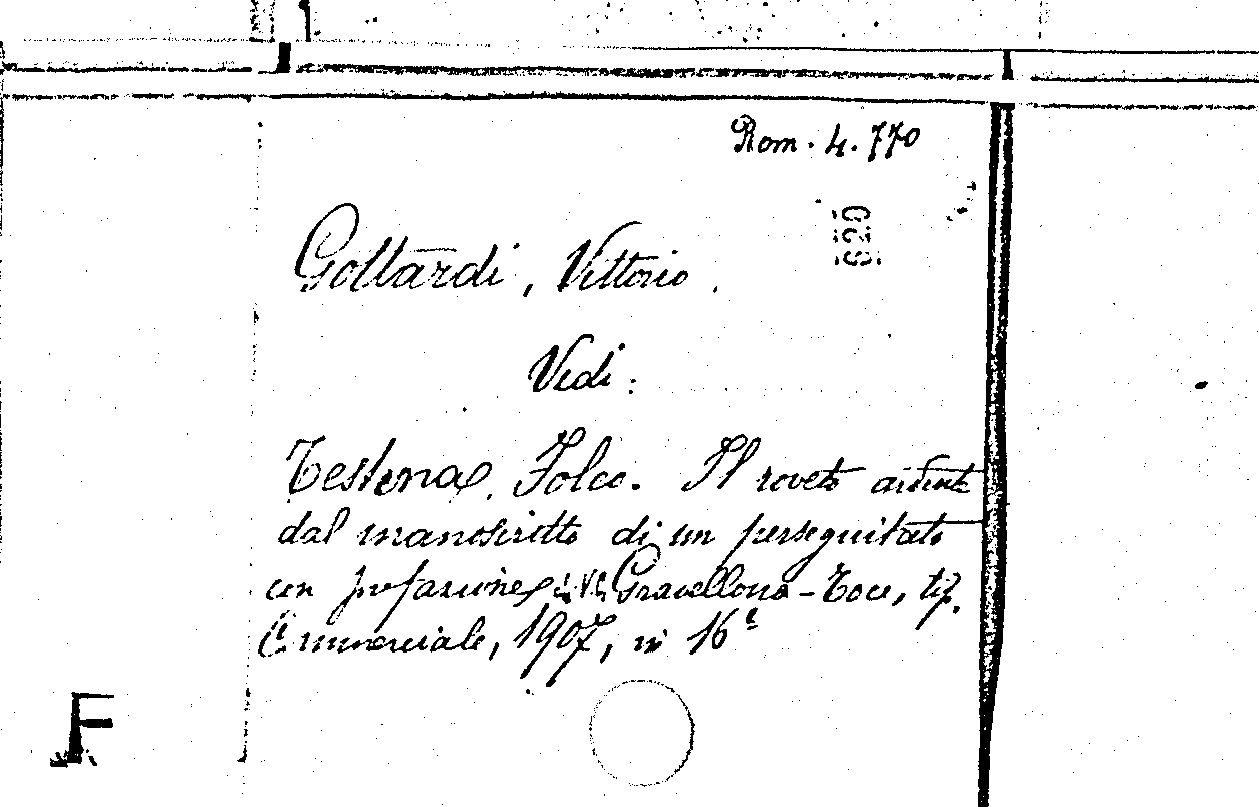 Rom. 4. 770
820
Gottardi, Vittorio.
Vedi:
Testena, Folco. Il roveto ardente
dal manoscritto di un perseguitato
con prefazione Gravellona-Toce, tip.
Commerciale, 1907, in 16º
F